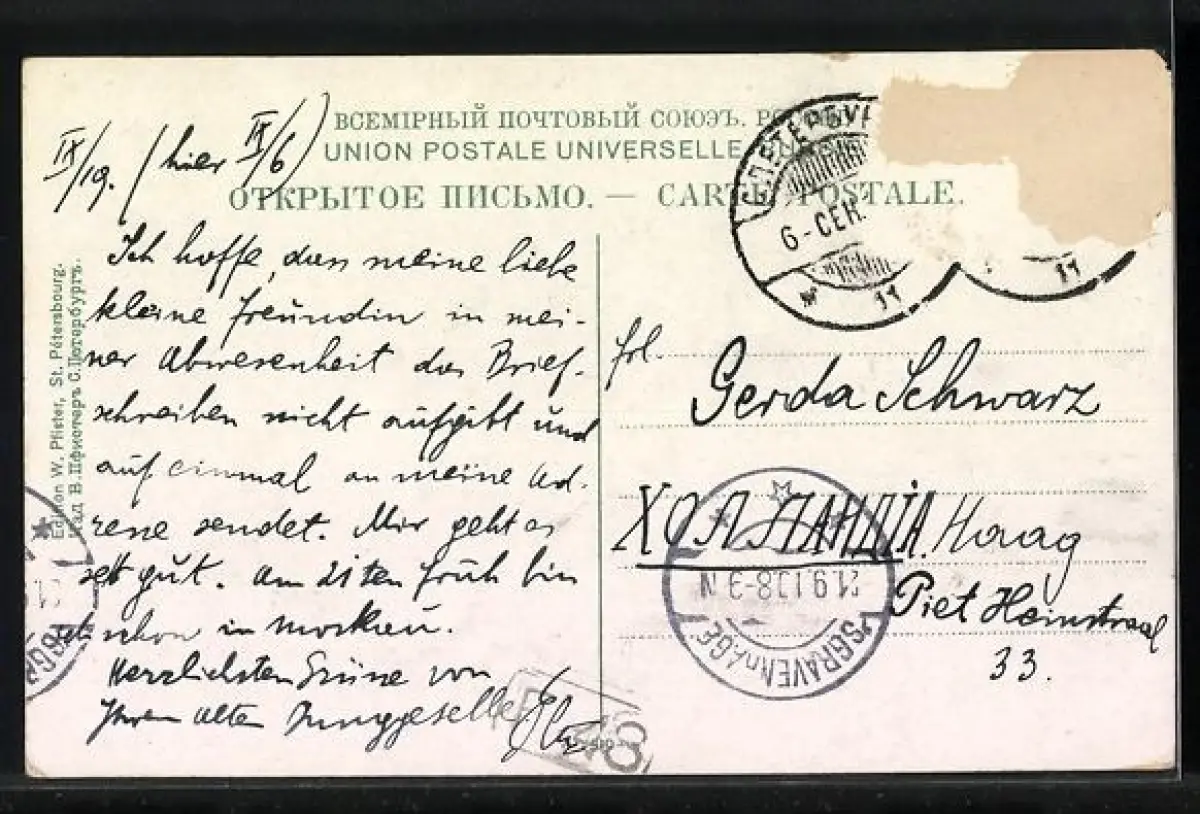 IX/19. (hier IX/6)
ВСЕМІРНЫЙ ПОЧТОВЫЙ СОЮЗЪ.
UNION POSTALE UNIVERSELLE
ОТКРЫТОЕ ПИСЬМО. — CARTE POSTALE.
Ich hoffe, dass meine liebe
kleine Freundin in mei-
ner Abwesenheit das Brief-
schreiben nicht aufgibt und
auf einmal an meine Ad-
resse sendet. Mir geht es
sehr gut. Am 21ten früh bin
ich schon in Moskau.
Herzlichsten Grüsse von
Ihrem alten Junggesellen
Edition W. Pfister, St. Pétersbourg.
Изд. В. Пфистеръ С.Петербургъ.
С.ПЕТЕРБУ
6-СЕН.
11
11
Frl.
Gerda Schwarz
ХОЛЛАНДІЯ. Haag
Piet Heinstraat
33.
'SGRAVENHAGE
21.9.11 8-9 N